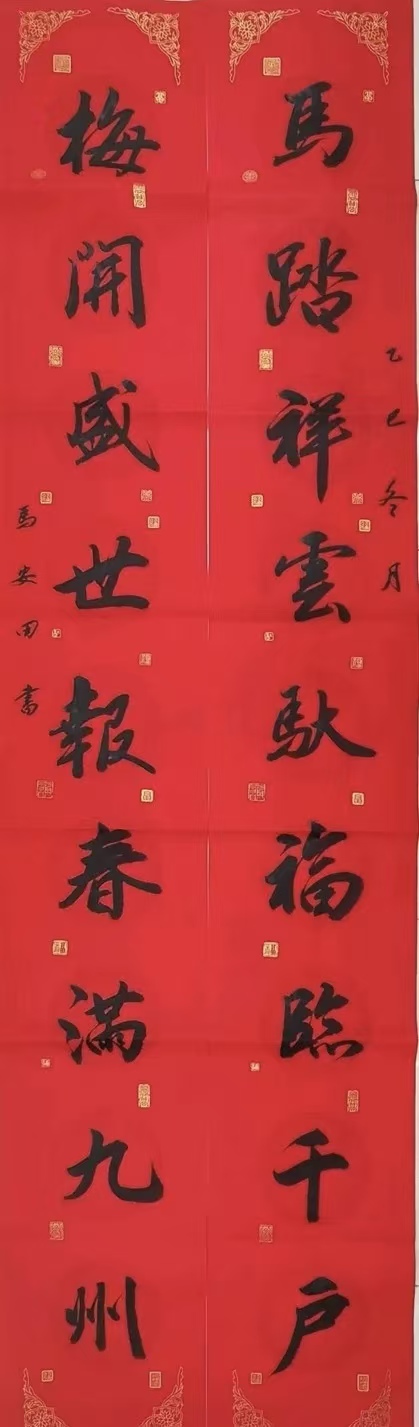 乙巳冬月
馬踏祥雲馱福臨千戶
梅開盛世報春滿九州
馬安田書